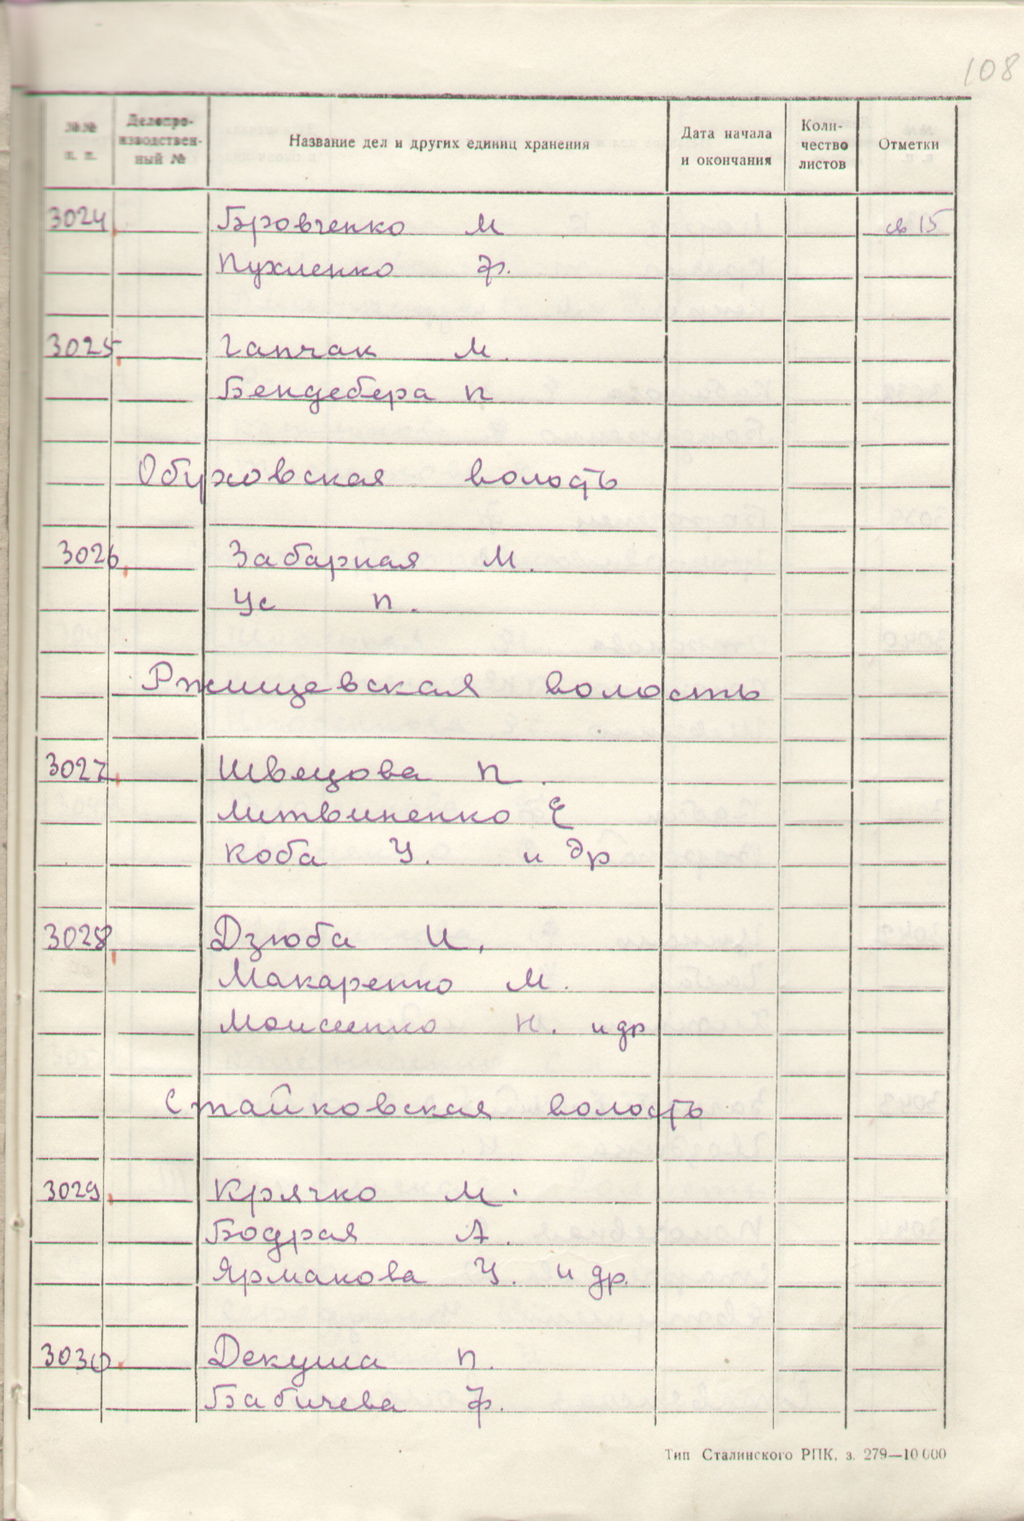 108
№№ п. п. Делопроизводственный № Название дел и других единиц хранения Дата начала и окончания Количество листов Отметки
3024. Бровченко М св 15
Пухленко Ф.
3025. Гапчак М.
Бендебера П
Обуховская волость
3026. Забарная М.
Ус П.
Ржищевская волость
3027. Швецова П.
Литвиненко Е
Коба У. и др
3028. Дзюба И.
Макаренко М.
Моисеенко Н. и др
Стайковская волость
3029. Крячко М.
Бодрая А.
Ярмакова У. и др.
3030. Декуша П.
Бабичева Ф.
Тип Сталинского РПК. з. 279—10 000